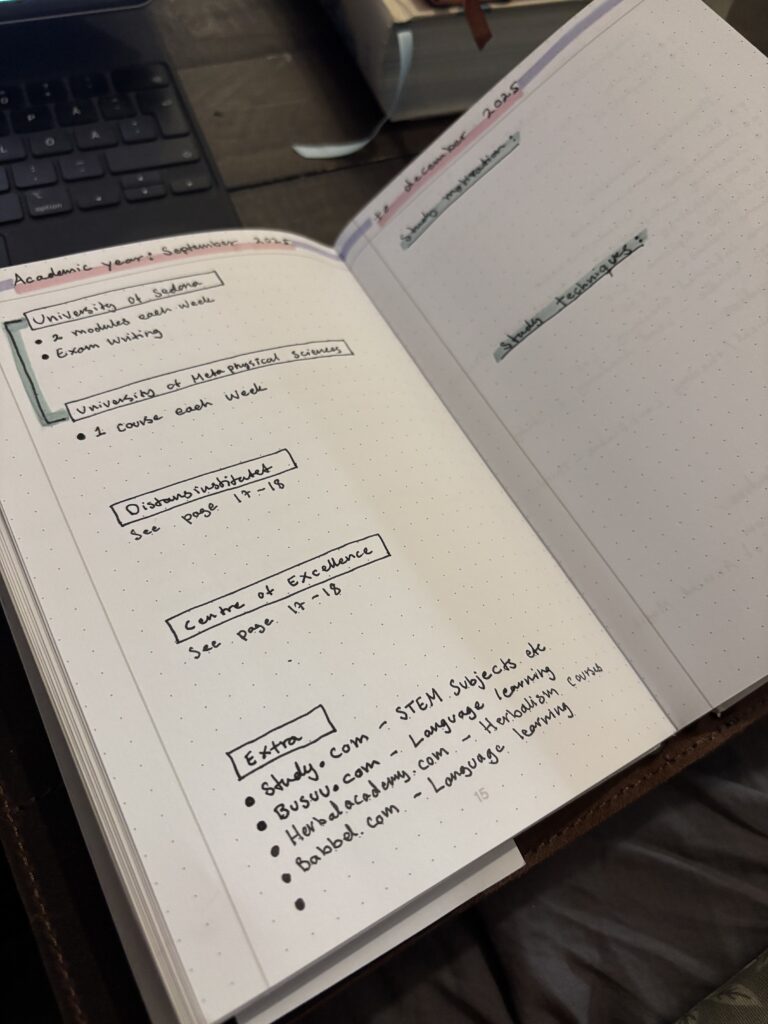 Academic year: September 2025
University of Sedona
• 2 modules each week
• Exam writing
University of Metaphysical Sciences
• 1 course each week
Distansinstitutet
See page 17-18
Centre of Excellence
See page 17-18
Extra
• Study.com - STEM subjects etc
• Busuu.com - Language learning
• Herbalacademy.com - Herbalism courses
• Babbel.com - Language learning
•
15
december 2025
Study motivation:
Study techniques:
option